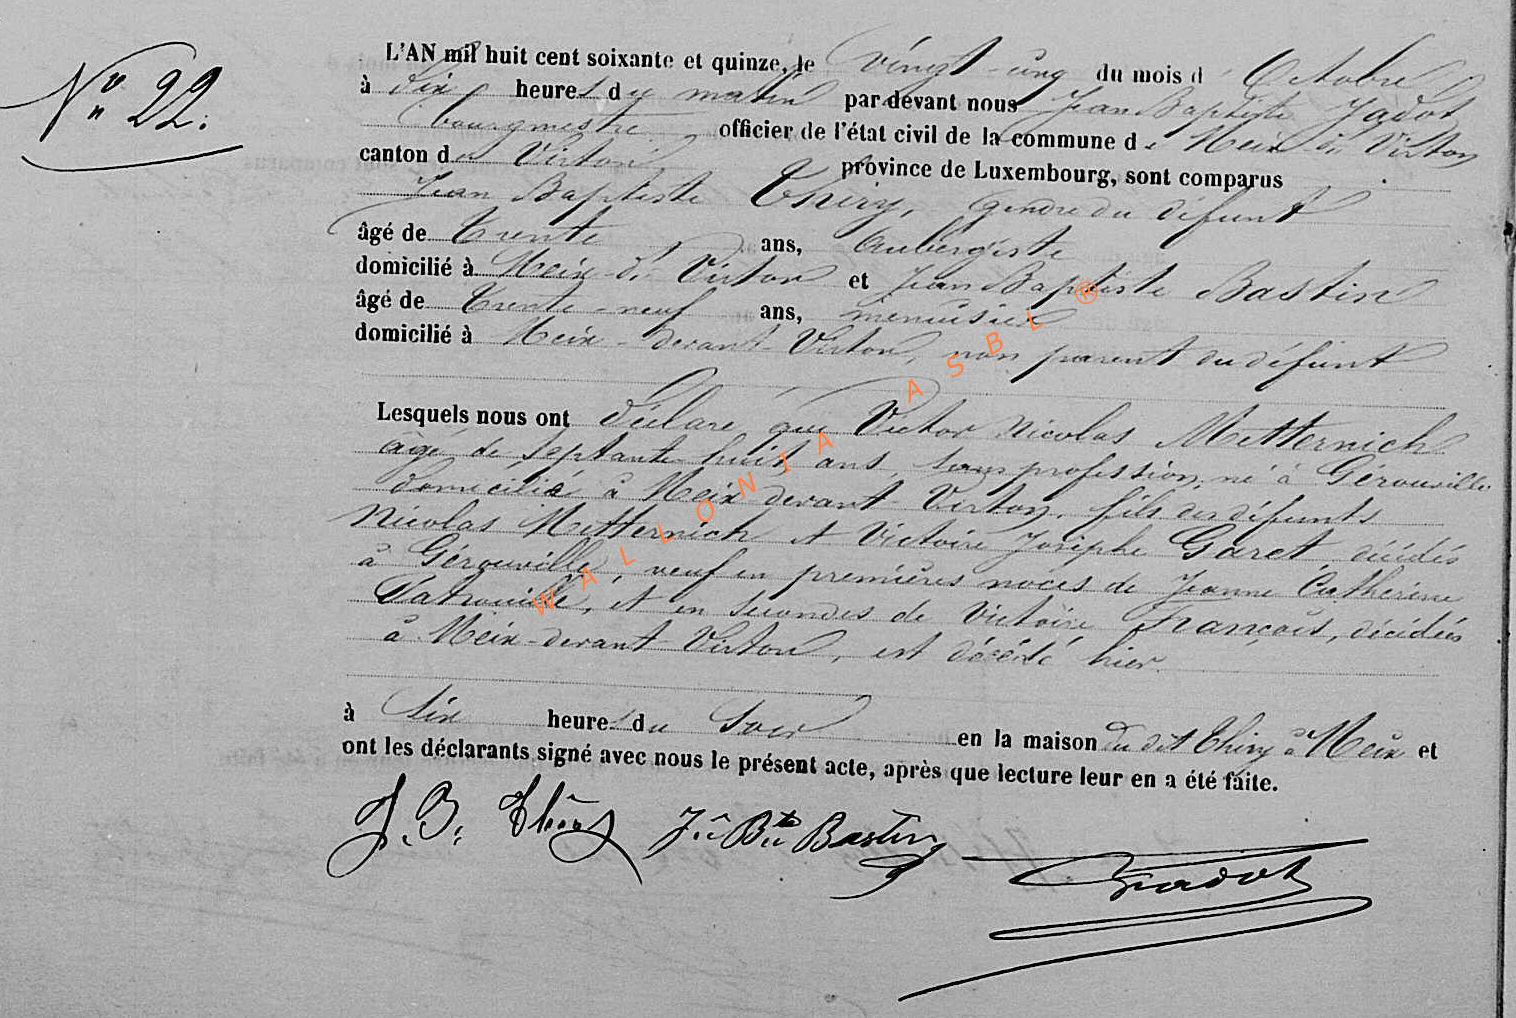 N° 22.
L'AN mil huit cent soixante et quinze, le vingt-un du mois d'Octobre
à dix heures du matin par devant nous Jean Baptiste Jadot
bourgmestre officier de l'état civil de la commune de Meix-dt Virton
canton de Virton province de Luxembourg, sont comparus
Jean Baptiste Thiry, gendre du défunt
âgé de Trente ans, Aubergiste
domicilié à Meix-dt Virton et Jean Baptiste Bastin
âgé de Trente-neuf ans, menuisier
domicilié à Meix-devant-Virton, non parent du défunt
Lesquels nous ont déclaré que Victor Nicolas Metternich
âgé de septante huit ans, sans profession, né à Gérouville
domicilié à Meix-devant-Virton, fils des défunts
Nicolas Metternich et Victoire Josèphe Garet, décédés
à Gérouville, veuf en premières noces de Jeanne Catherine
et en secondes de Victoire François, décédées
à Meix-devant Virton, est décédé hier
à six heures du soir en la maison du dit Thiry à Meix et
ont les déclarants signé avec nous le présent acte, après que lecture leur en a été faite.
J. B. Thiry Jn Bte Bastin
Jadot
WALLONIA ASBL ®